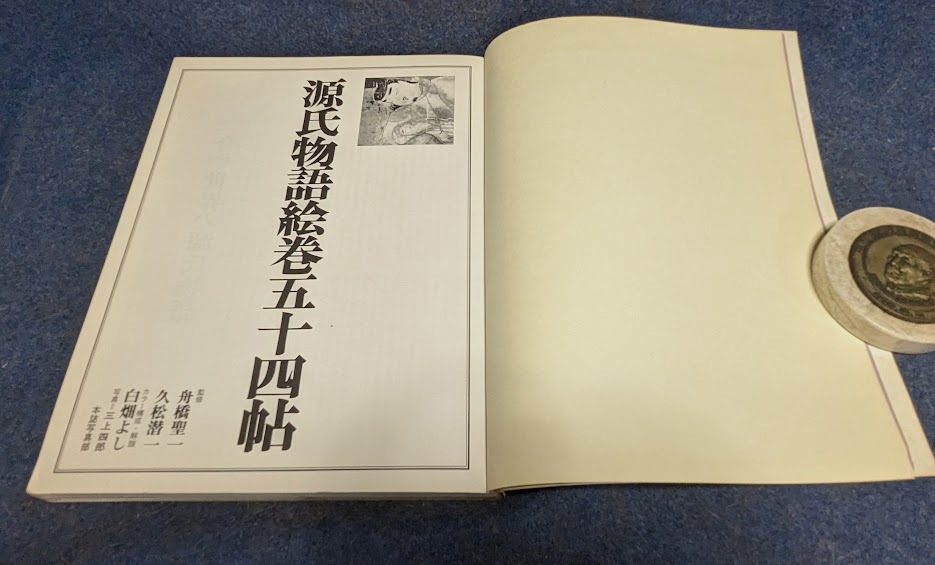 源氏物語絵巻五十四帖
監修
舟橋聖一
久松潜一
カラー構成・解説
白畑よし
写真＝三上四郎
本誌写真部